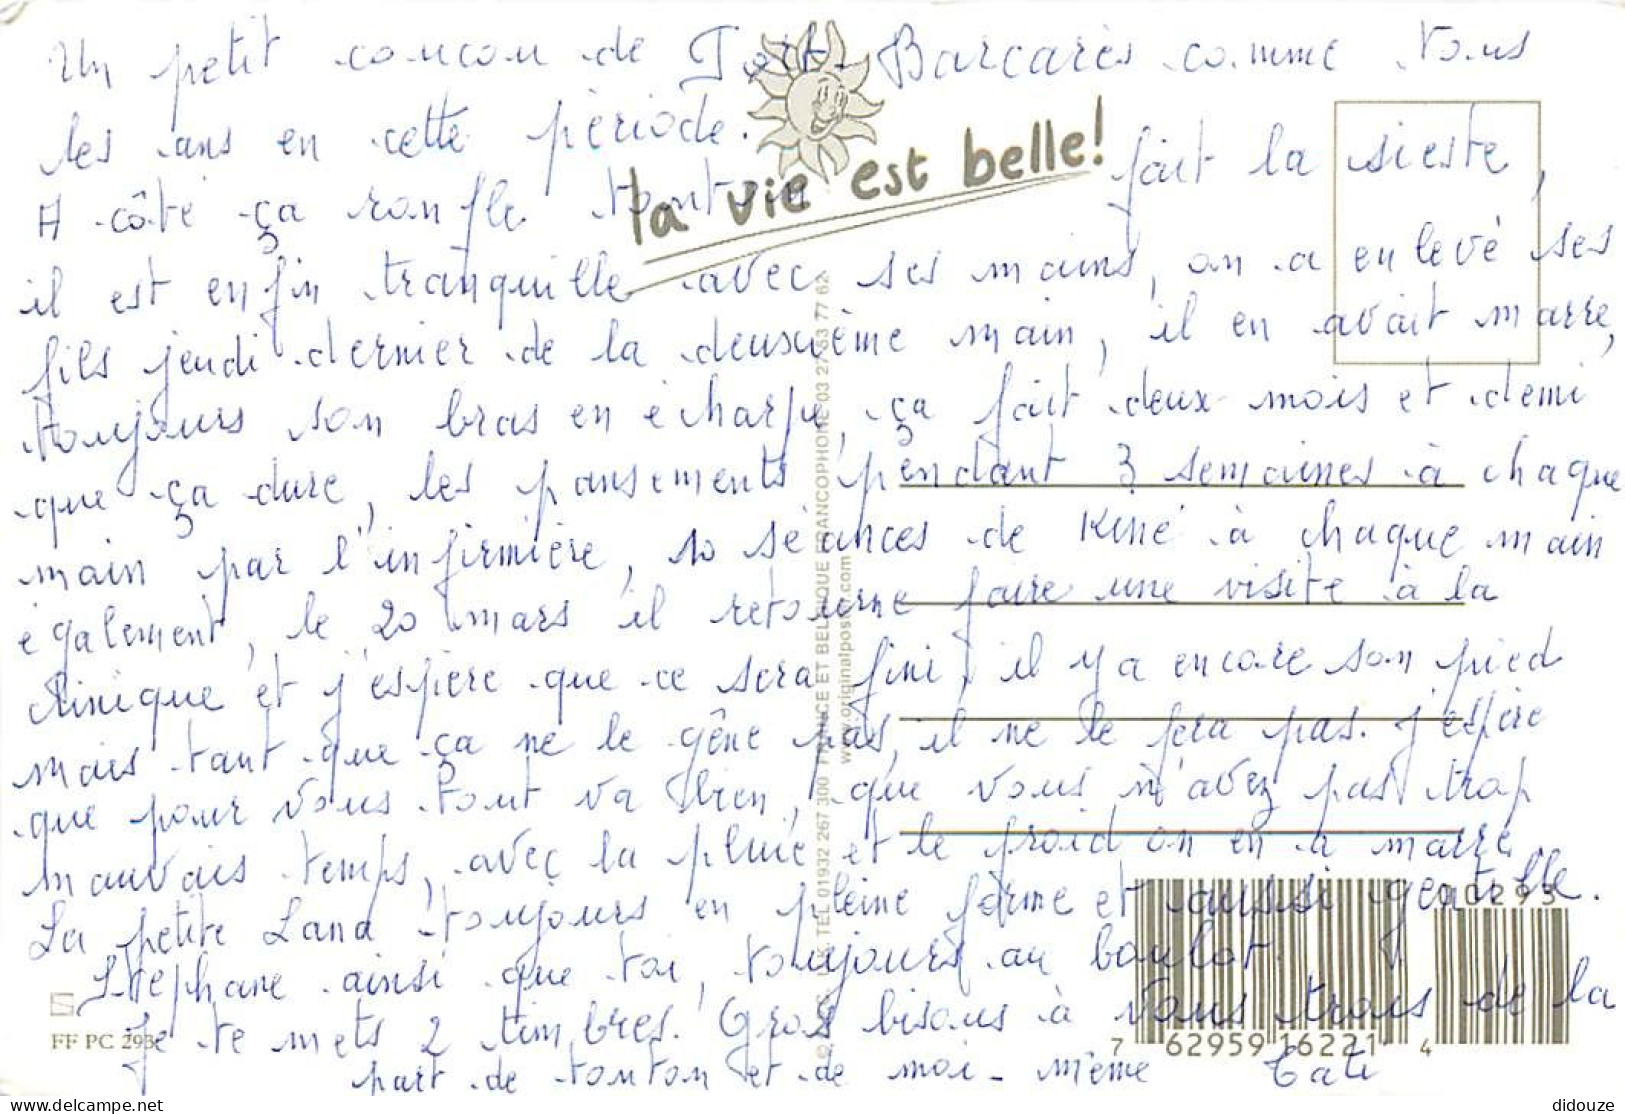 Un petit coucou de Port-Barcarès comme tous
les ans en cette période.
la vie est belle!
A côté ça ronfle tonton fait la sieste,
il est enfin tranquille avec ses mains, on a enlevé ses
fils jeudi dernier de la deuxième main, il en avait marre,
toujours son bras en écharpe, ça fait deux mois et demi
que ça dure, les pansements pendant 3 semaines à chaque
main par l'infirmière, 10 séances de Kiné à chaque main
également, le 20 mars il retourne faire une visite à la
clinique et j'espère que ce sera fini, il y a encore son pied
mais tant que ça ne le gêne pas, il ne le fera pas. J'espère
que pour vous tout va bien, que vous n'avez pas trop
mauvais temps, avec la pluie et le froid on en a marre.
La petite Lana toujours en pleine forme et aussi gentille.
Stéphane ainsi que toi, toujours au boulot.
Je te mets 2 timbres. Gros bisous à vous trois de la
part de tonton et de moi-même Tati
FF PC 293
TEL 01932 267 300 FRANCE ET BELGIQUE FRANCOPHONE 03 27 63 77 62
www.originalposter.com
00293
7 62959 16221 4
didouze